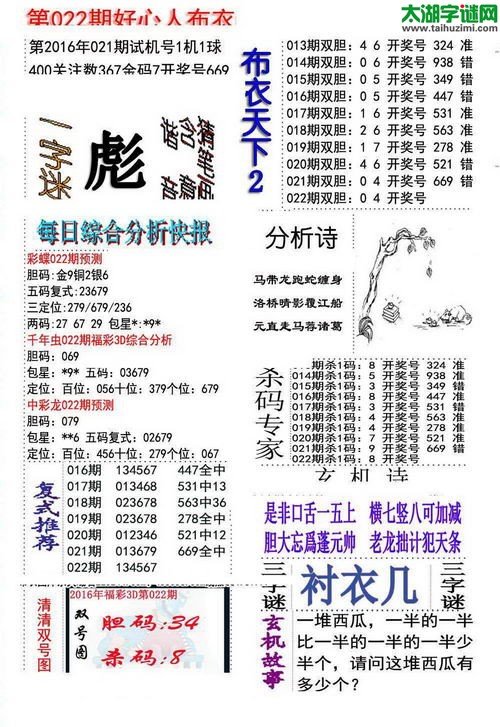 第022期好心人布衣
太湖字谜网
www.taihuzimi.com
第2016年021期试机号1机1球
400关注数367金码7开奖号669
一字迷
彪
布衣天下2
013期双胆：4 6 开奖号 324 准
014期双胆：0 6 开奖号 938 错
015期双胆：0 5 开奖号 349 错
016期双胆：0 5 开奖号 447 错
017期双胆：1 6 开奖号 531 准
018期双胆：2 6 开奖号 563 准
019期双胆：1 7 开奖号 278 准
020期双胆：4 6 开奖号 521 错
021期双胆：0 4 开奖号 669 错
022期双胆：0 4 开奖号
每日综合分析快报
彩蝶022期预测
胆码：金9铜2银6
五码复式：23679
三定位：279/679/236
两码：27 67 29 包星*:*9*
千年虫022期福彩3D综合分析
胆码：069
包星：*9* 五码：03679
定位：百位：056十位：379个位：679
中彩龙022期预测
胆码：079
包星：**6 五码复式：02679
定位：百位：456十位：279个位：067
分析诗
马带龙跑蛇缠身
洛桥晴影覆江船
元直走马荐诸葛
杀码专家
期杀1码：8 开奖号 324 准
014期杀1码：5 开奖号 938 准
015期杀1码：3 开奖号 349 错
016期杀1码：8 开奖号 447 准
017期杀1码：5 开奖号 531 错
018期杀1码：4 开奖号 563 准
019期杀1码：4 开奖号 278 准
020期杀1码：7 开奖号 521 准
021期杀1码：9 开奖号 669 错
022期杀1码：8 开奖号
玄机诗
是非口舌一五上 横七竖八可加减
胆大忘爲蓬元帅 老龙拙计犯天条
复式推荐
016期 134567 447全中
017期 013468 531中13
018期 023678 563中36
019期 023678 278全中
020期 012346 521中12
021期 013679 669全中
022期 134567
清清双号图
2016年福彩3D第022期
双号图
胆码:34
杀码:8
三字谜
衬衣几
三字谜
玄机故事
一堆西瓜，一半的一半
比一半的一半的一半少
半个，请问这堆西瓜有
多少个？